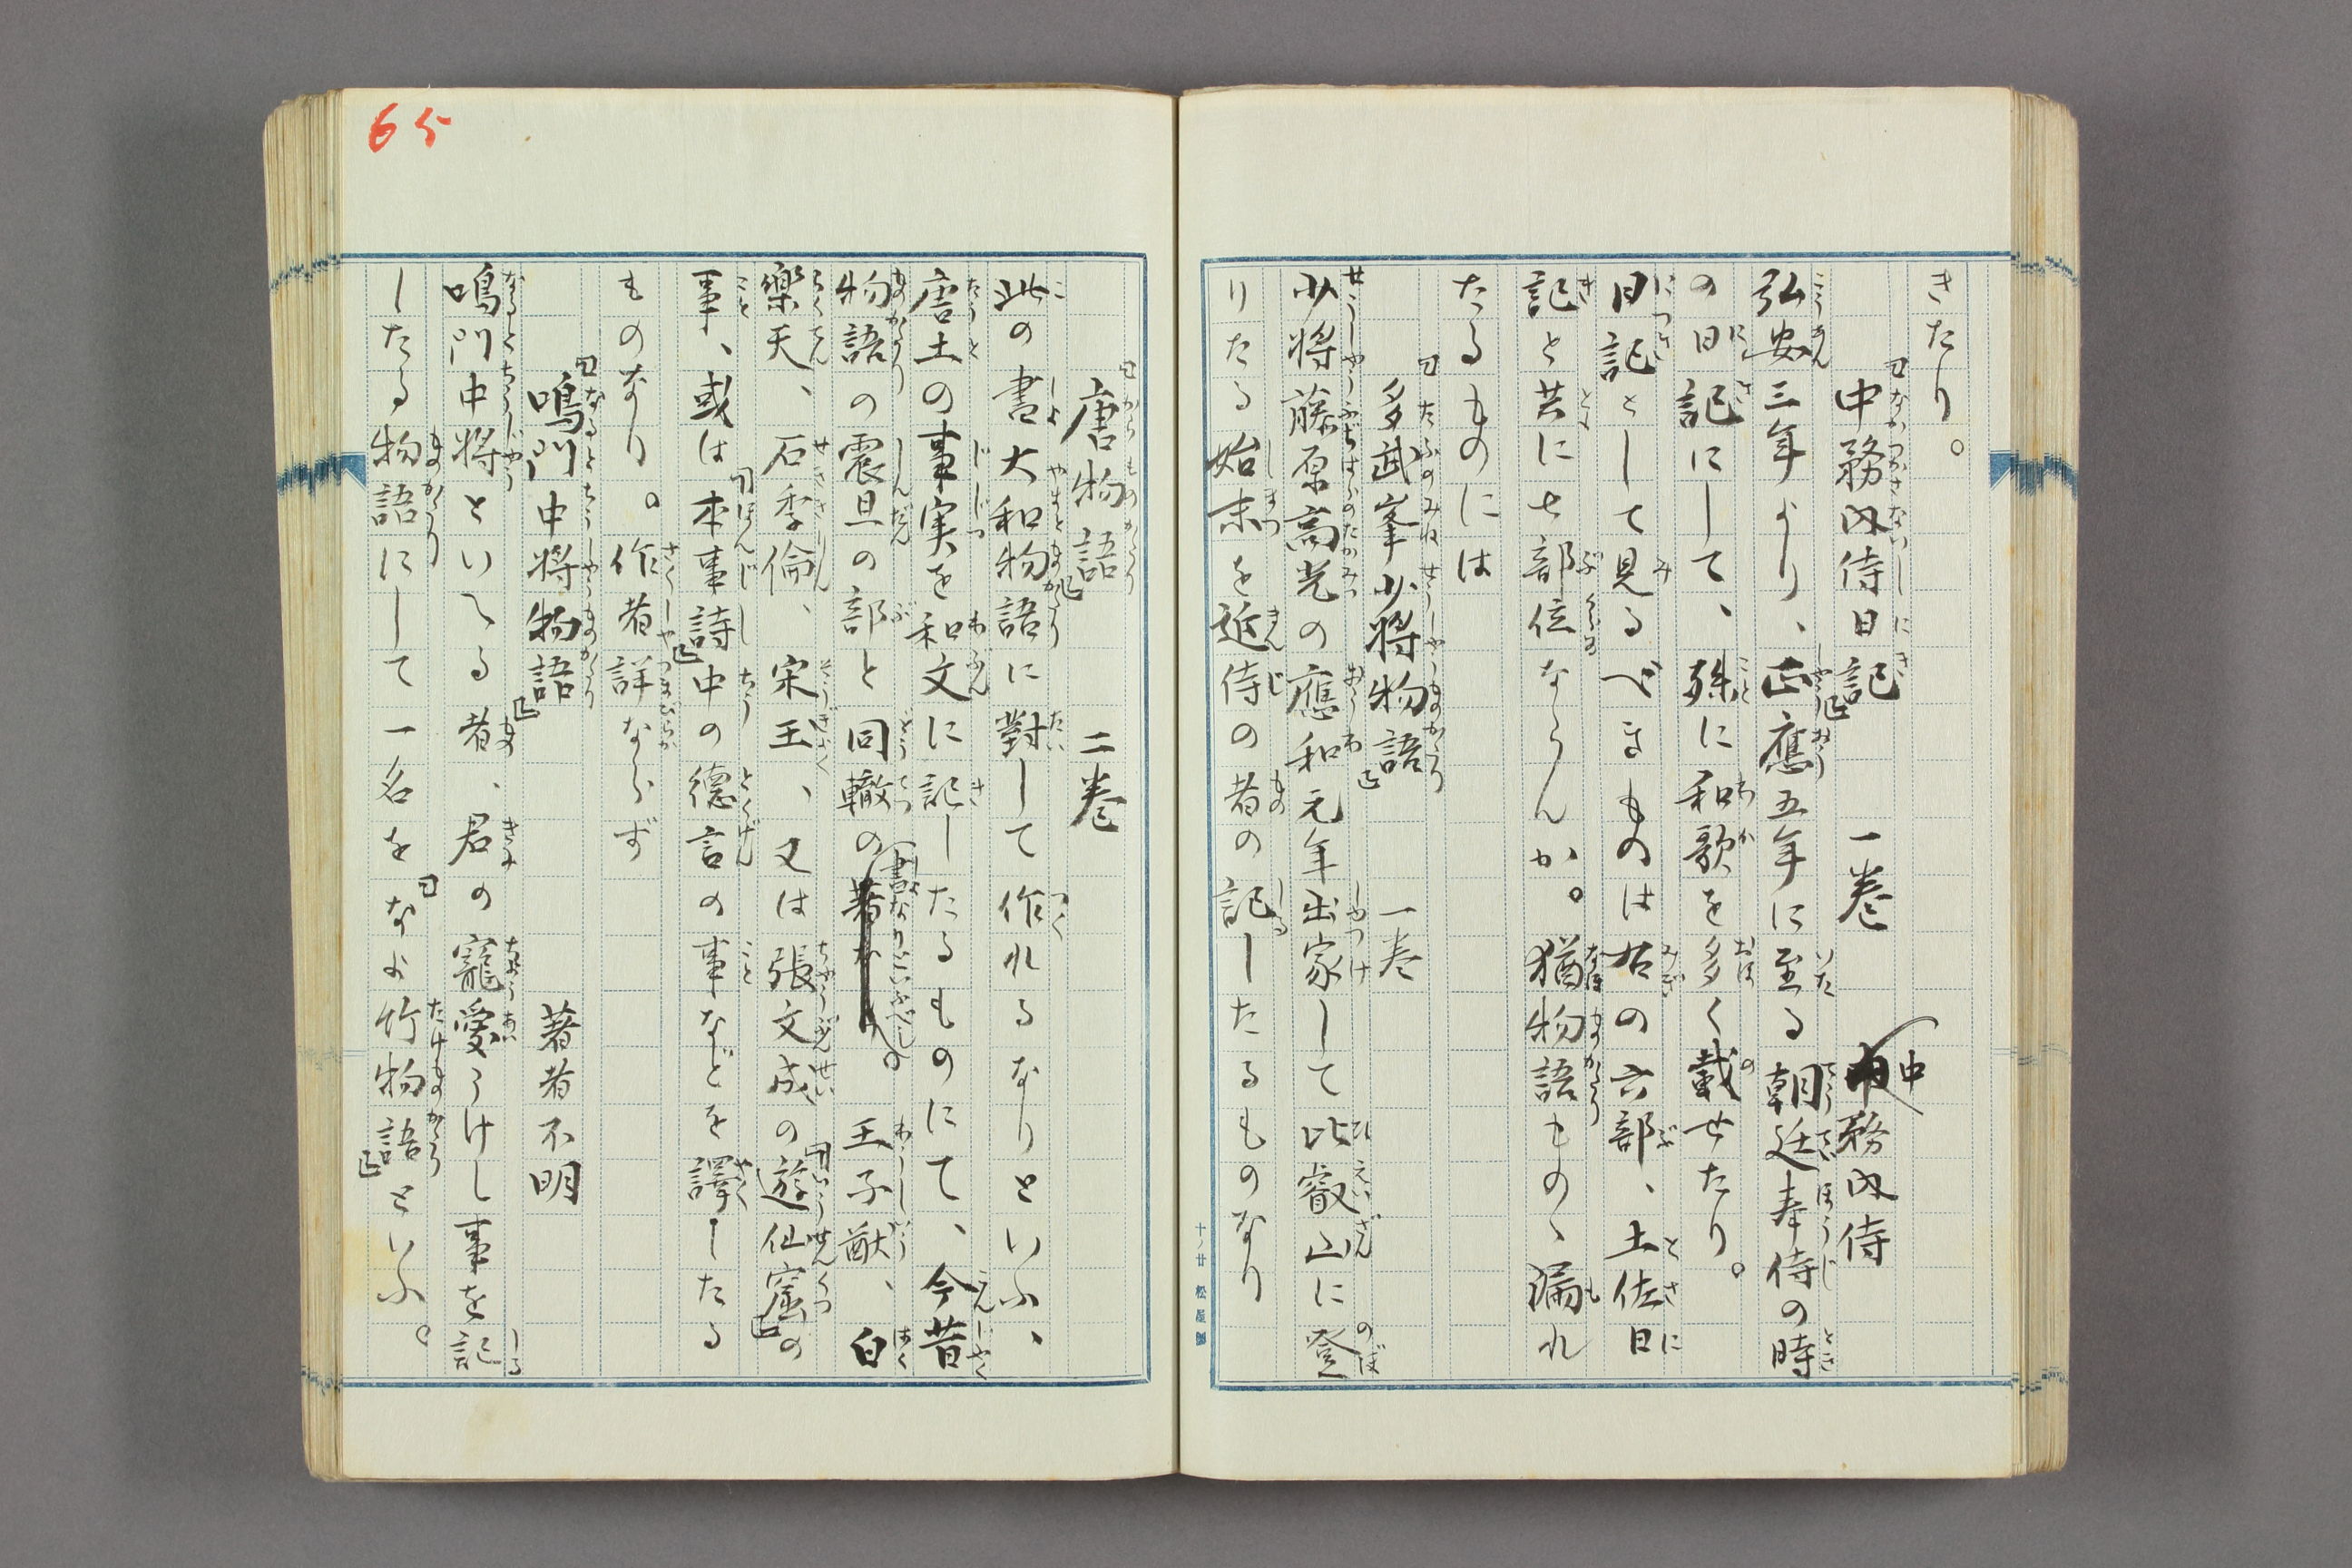 きたり。
「中務内侍日記」 一巻 中務内侍
弘安三年より、正應五年に至る朝廷奉侍の時
の日記にして、殊に和歌を多く載せたり。
日記として見るべきものは右の六部、土佐日
記と共に七部位ならんか。猶物語ものゝ漏れ
たるものには
「多武峯少将物語」 一巻
少将藤原高光の應和元年出家して比叡山に登
りたる始末を近侍の者の記したるものなり
十ノ廿 松屋製
「唐物語」 二巻
此の書大和物語に對して作れるなりといふ、
唐土の事実を和文に記したるものにて、今昔
物語の震旦の部と同轍の書なりといふべし。王子猷、白
樂天、石季倫、宋玉、又は張文成の「遊仙窟」の
事、或は「本事詩」中の德言の事などを譯したる
ものなり。作者詳ならず
「鳴門中将物語」 著者不明
鳴門中将といへる者、君の寵愛うけし事を記
したる物語にして一名を「なよ竹物語」といふ。
65